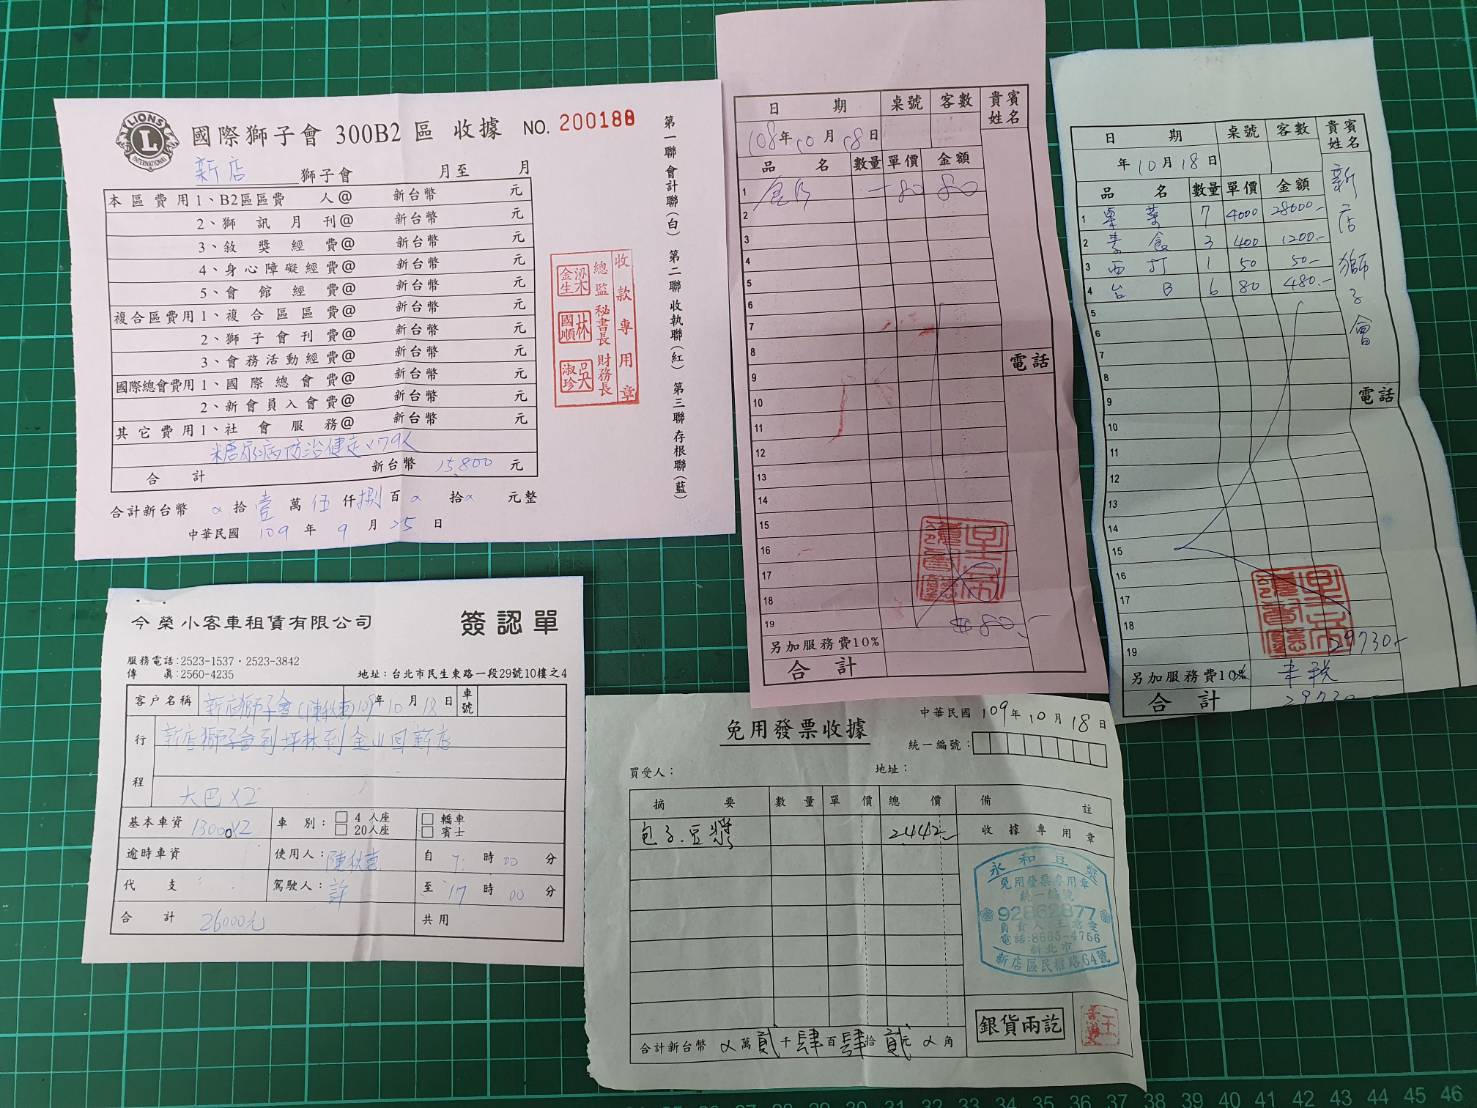 LIONS
L
INTERNATIONAL
國際獅子會 300B2 區 收據 NO. 200188
新店 獅子會 月至 月
本區費用 1、B2區區費 人@ 新台幣 元
2、獅訊月刊@ 新台幣 元
3、敘獎經費@ 新台幣 元
4、身心障礙經費@ 新台幣 元
5、會館經費@ 新台幣 元
複合區費用 1、複合區區費 新台幣 元
2、獅子會刊費@ 新台幣 元
3、會務活動經費@ 新台幣 元
國際總會費用 1、國際總會費@ 新台幣 元
2、新會員入會費@ 新台幣 元
其它費用 1、社會服務@ 新台幣 元
糖尿病防治健走x79人
合計 新台幣 15,800 元
合計新台幣 拾壹萬伍仟捌百 拾 元整
中華民國 109 年 9 月 25 日
收款專用章
總監 梁木金生
秘書長 林國順
財務長 吳淑珍
第一聯會計聯(白) 第二聯收執聯(紅) 第三聯存根聯(藍)
日期 桌號 客數 貴賓姓名
108年10月18日
品名 數量 單價 金額
1 一 80 80
2
3
4
5
6
7
8
9
10
11
12
13
14
15
16
17
18
19
電話
$80.-
另加服務費10%
合計
日期 桌號 客數 貴賓姓名
年10月18日
新店獅子會
品名 數量 單價 金額
1 桌菜 7 4000 28000.-
2 素食 3 400 1200.-
3 西打 1 50 50.-
4 台B 6 80 480.-
5
6
7
8
9
10
11
12
13
14
15
16
17
18
19
電話
29730.-
另加服務費10%
合計 29730
今榮小客車租賃有限公司 簽認單
服務電話:2523-1537・2523-3842
傳真:2560-4235 地址:台北市民生東路一段29號10樓之4
客户名稱 新店獅子會 109年10月18日 車號
行程 新店獅子會到坪林到金山回新店
大巴X2
基本車資 13000X2 車別: 4人座 20人座 轎車 賓士
逾時車資 使用人: 自 7 時 00 分
代支 駕駛人:許 至 17 時 00 分
合計 26000元 共用
免用發票收據 中華民國 109年10月18日
統一編號:
買受人: 地址:
摘要 數量 單價 總價 備註
包子.豆漿 2442- 收據專用章
永和豆漿
免用發票專用章
統一編號
92862877
電話:8665-4766
新北市
新店區民權路64號
銀貨兩訖
合計新台幣 萬貳千肆百肆拾貳元 角
35 36 37 38 39 40 41 42 43 44 45 46